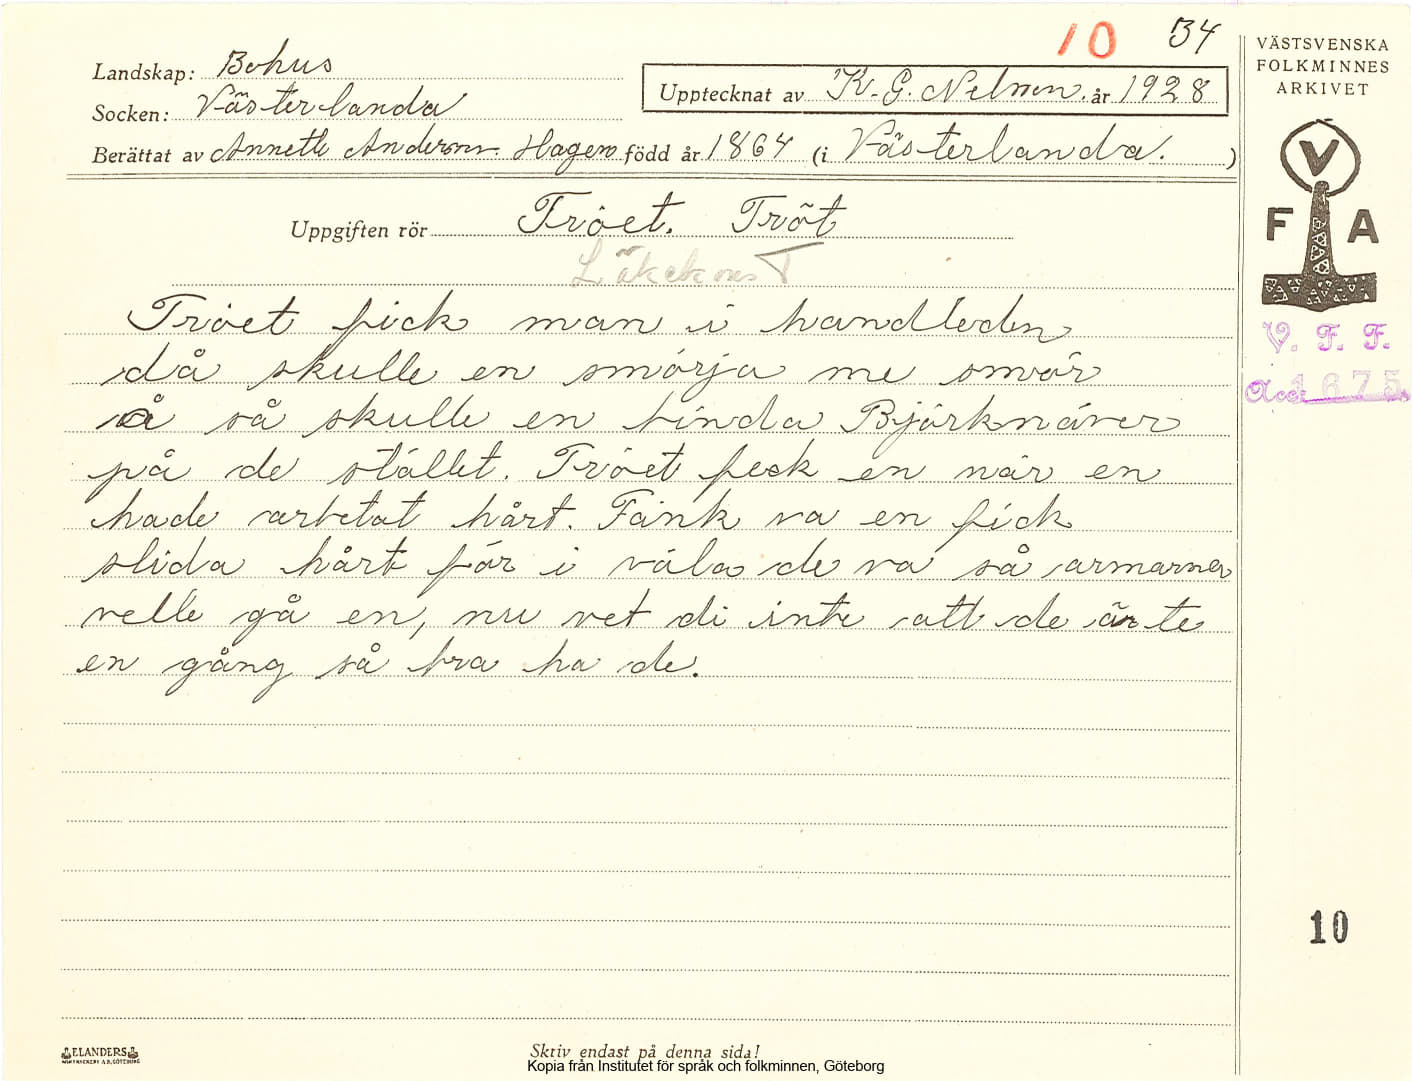 10 34
Landskap: Bohus
Socken: Västerlanda
Upptecknat av K. G. Nelson. år 1928
Berättat av Annette Anderson. Hagen född år 1864 (i Västerlanda. )
Uppgiften rör Tröet. Tröt
Läkekonst
Tröet fick man i handleden
då skulle en smörja me smör
å så skulle en binda Björknäver
på de stället. Tröet feck en när en
hade arbetat hårt. Tänk va en fick
slida hårt för i väla de va så armarner
velle gå en, nu vet di inte att de är te
en gång så bra ha de.
VÄSTSVENSKA
FOLKMINNES
ARKIVET
V
F A
V. F. F.
Acc. 1675
10
ELANDERS
Skriv endast på denna sida!
Kopia från Institutet för språk och folkminnen, Göteborg